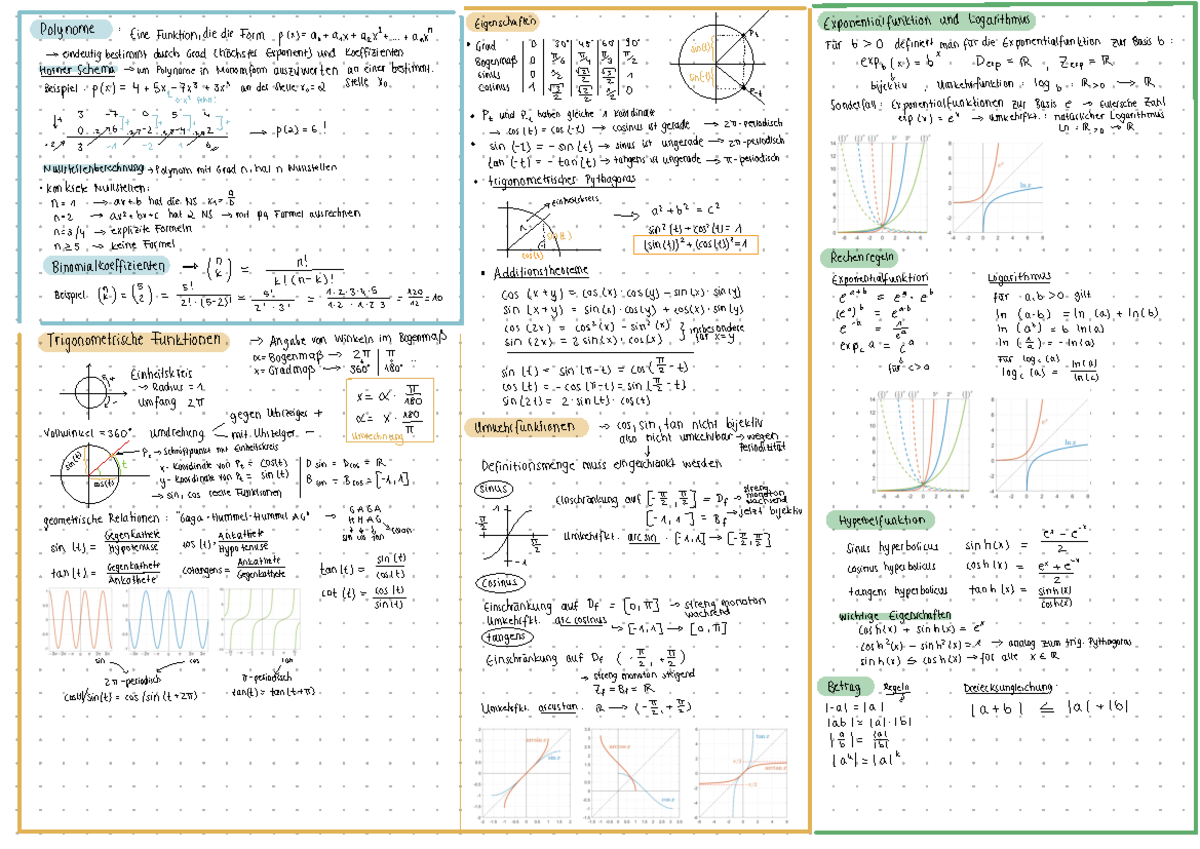 Polynome : Eine Funktion, die die Form p(x) = a₀ + a₁x + a₂x² + .... + aₙxⁿ
→ eindeutig bestimmt durch Grad (höchster Exponent) und Koeffizienten
Horner Schema → um Polynome in Monomform auszuwerten an einer bestimmt. Stelle x₀.
Beispiel: p(x) = 4 + 5x - 7x³ + 3x⁴ an der Stelle x₀ = 2
0·x² fehlt!
3 -7 0 5 4
→ p(2) = 6 !
Nullstellenberechnung → Polynom mit Grad n, hat n Nullstellen
• konkrete Nullstellen:
n = 1 → ax+b hat die NS
n = 2 → ax² + bx + c hat 2 NS → mit pq Formel ausrechnen
n = 3/4 → explizite Formeln
n ≥ 5 → keine Formel
Binomialkoeffizienten → (n k) = n! / k!(n-k)!
Beispiel: (n k) = (5 2) = 5! / 2!·(5-2)! = 5! / 2!·3! = 1·2·3·4·5 / 1·2·1·2·3 = 120/12 = 10
Trigonometrische Funktionen → Angabe von Winkeln im Bogenmaß
α = Bogenmaß → 2π | π
x = Gradmaß → 360° | 180° ..
Einheitskreis
→ Radius = 1
Umfang 2π
x = α · π/180
α = x · 180/π
Umrechnung
gegen Uhrzeiger +
Vollwinkel = 360° Umdrehung
sin(t)
cos(t)
Pₜ → Schnittpunkt mit Einheitskreis
x-Koordinate von Pₜ = cos(t) | D sin = D cos = ℝ
y-Koordinate von Pₜ = sin(t) | B sin = B cos = [-1,1]
→ sin, cos reelle Funktionen
geometrische Relationen : "Gaga-Hummel-Hummel AG" → G A G A
H H A G
sin cos tan cotan
sin(t) = Gegenkathete / Hypotenuse cos(t) = Ankathete / Hypotenuse
tan(t) = Gegenkathete / Ankathete cotangens = Ankathete / Gegenkathete tan(t) = sin(t) / cos(t)
cot(t) = cos(t) / sin(t)
sin cos tan
2π-periodisch π-periodisch
cos(t)/sin(t) = cos/sin(t+2π) tan(t) = tan(t+π)
Eigenschaften
• Grad | 0 | 30° | 45° | 60° | 90°
Bogenmaß | 0 | π/6 | π/4 | π/3 | π/2
sinus | 0 | 1/2 | √2/2 | √3/2 | 1
cosinus | 1 | √3/2 | √2/2 | 1/2 | 0
sin(t)
Pₜ
P₋ₜ
• Pₜ und P₋ₜ haben gleiche x Koordinate
→ cos(t) = cos(-t) → cosinus ist gerade → 2π-periodisch
• sin(-t) = -sin(t) → sinus ist ungerade → 2π-periodisch
tan(-t) = -tan(t) → tangens ist ungerade → π-periodisch
• trigonometrischer Pythagoras
Einheitskreis
sin(t)
cos(t)
→ a² + b² = c²
sin²(t) + cos²(t) = 1
(sin(t))² + (cos(t))² = 1
• Additionstheoreme
cos(x+y) = cos(x)·cos(y) - sin(x)·sin(y)
sin(x+y) = sin(x)·cos(y) + cos(x)·sin(y)
cos(2x) = cos²(x) - sin²(x) } insbesondere
sin(2x) = 2 sin(x)·cos(x) } für x=y
sin(t) = sin(π-t) = cos(π/2 - t)
cos(t) = -cos(π-t) = sin(π/2 - t)
sin(2t) = 2·sin(t)·cos(t)
Umkehrfunktionen → cos, sin, tan nicht bijektiv
also nicht umkehrbar → wegen Periodizität
Definitionsmenge muss eingeschränkt werden
sinus
Einschränkung auf [-π/2, π/2] = Df → streng monoton wachsend
[-1,1] = Bf → jetzt bijektiv
Umkehrfkt. arcsin : [-1,1] → [-π/2, π/2]
cosinus
Einschränkung auf Df = [0,π] → streng monoton wachsend
Umkehrfkt. arc cosinus
↳ [-1,1] → [0,π]
tangens
Einschränkung auf Df (-π/2, +π/2)
→ streng monoton steigend
Zf = Bf = ℝ
Umkehrfkt. arcustan. ℝ → (-π/2, +π/2)
arcsin x
sin x
arccos x
cos x
tan x
π/2
arctan x
-π/2
Exponentialfunktion und Logarithmus
Für b > 0 definiert man für die Exponentialfunktion zur Basis b :
exp_b(x) = bˣ D exp = ℝ, Z exp = ℝ.
bijektiv, Umkehrfunktion : log_b : ℝ>0 → ℝ
Sonderfall: Exponentialfunktionen zur Basis e → Eulersche Zahl
exp(x) = eˣ → Umkehrfkt.: natürlicher Logarithmus
ln : ℝ>0 → ℝ
eˣ
ln x
Rechenregeln
Exponentialfunktion Logarithmus
e^(a+b) = e^a · e^b für a,b > 0 gilt
(e^a)^b = e^(a·b) ln(a·b) = ln(a) + ln(b)
e^(-a) = 1/e^a ln(a^b) = b ln(a)
exp_c a = c^a ln(1/a) = -ln(a)
für c > 0 für log_c(a)
log_c(a) = ln(a) / ln(c)
5ˣ 3ˣ 2ˣ
eˣ
ln x
Hyperbelfunktion
sinus hyperbolicus sinh(x) = eˣ - e⁻ˣ / 2
cosinus hyperbolicus cosh(x) = eˣ + e⁻ˣ / 2
tangens hyperbolicus tanh(x) = sinh(x) / cosh(x)
wichtige Eigenschaften
cosh(x) + sinh(x) = eˣ
cosh²(x) - sinh²(x) = 1 → analog zum trig. Pythagoras
sinh(x) ≤ cosh(x) → für alle x ∈ ℝ
Betrag Regeln Dreiecksungleichung
|-a| = |a| |a+b| ≤ |a| + |b|
|ab| = |a|·|b|
|a/b| = |a|/|b|
|aᵏ| = |a|ᵏ